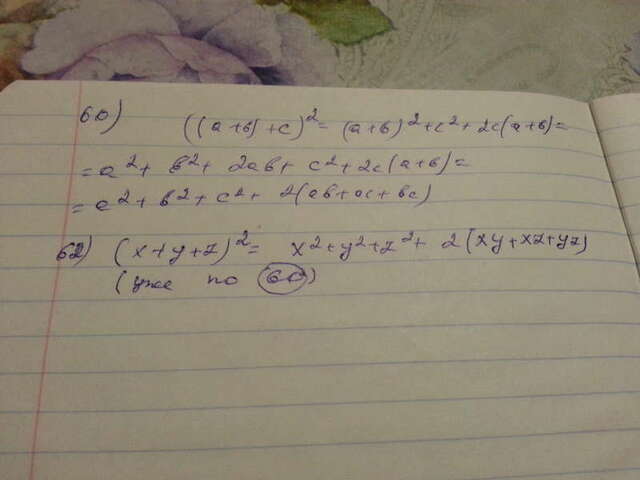 60) ((a+b)+c)²= (a+b)²+c²+2c(a+b)=
=a²+ b²+ 2ab+ c²+2c(a+b)=
=a²+b²+c²+ 2(ab+ac+bc)
62) (x+y+z)²= x²+y²+z²+ 2(xy+xz+yz)
(уже по 60)